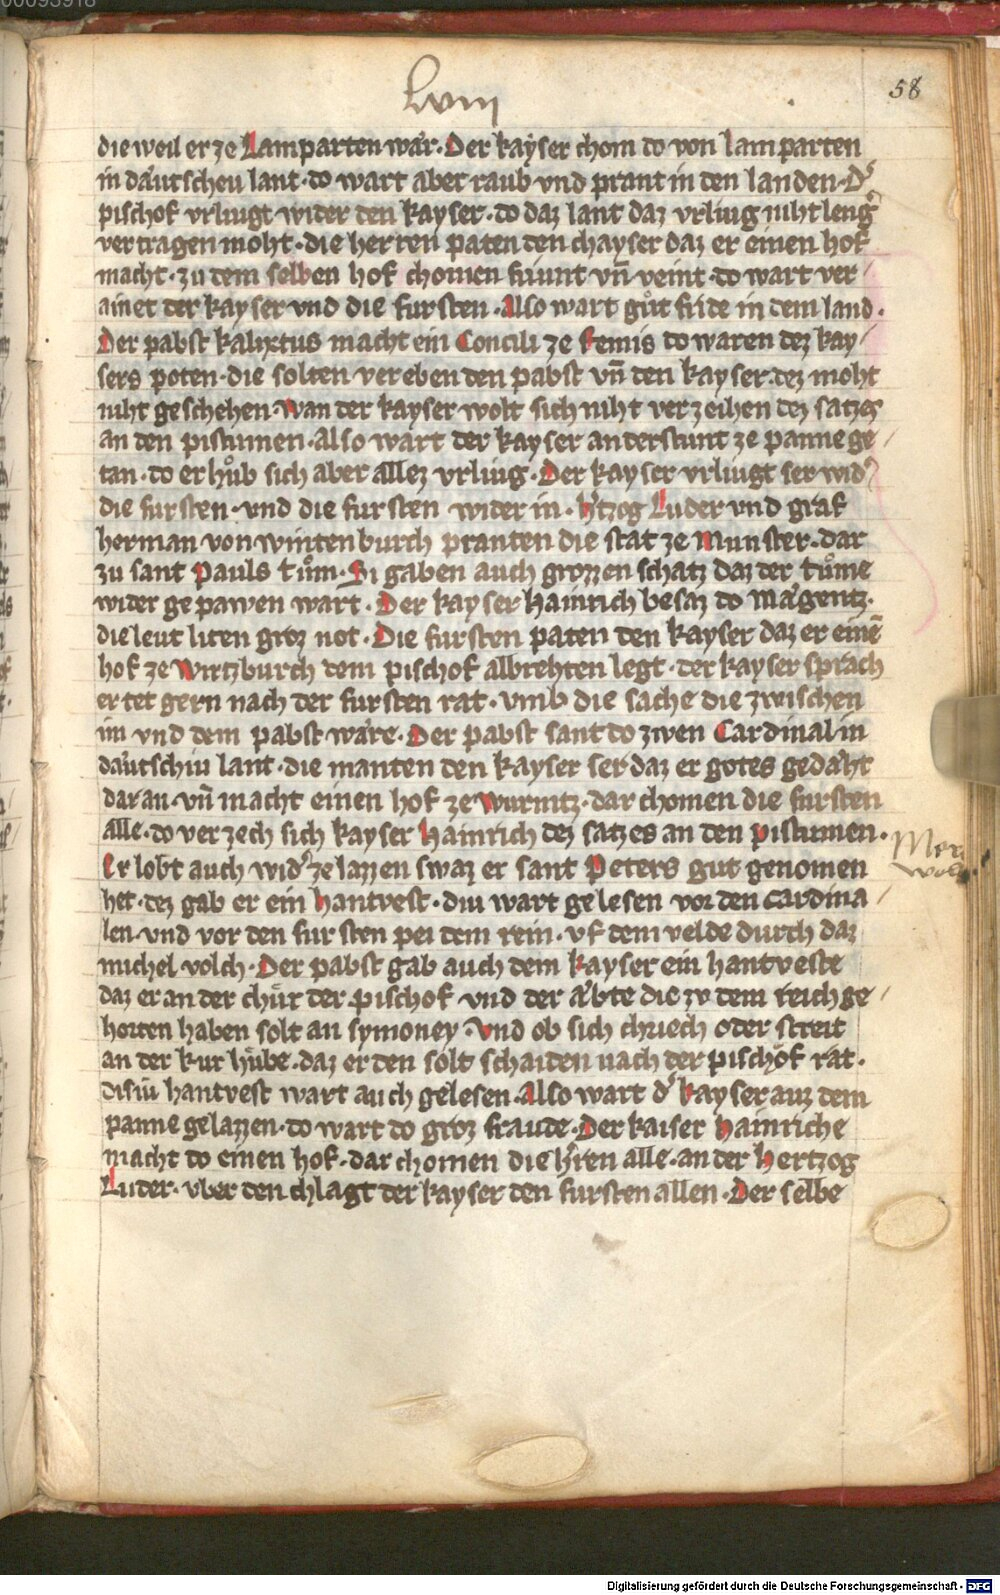 00093918
Lviii
58
die weil er ze Lamparten wär. Der kayser chom do von lamparten
in däutscheu lant. do wart aber raub vnd prant in den landen. Dʼ
pischof vrliugt wider den kayser. do daz lant daz vrliug niht lengʼ
vertragen moht. die herren paten den chayser daz er einen hof
macht. zu dem selben hof chomen friunt vn̄ veint. do wart ver /
ainet der kayser vnd die fursten. Also wart gůt fride in dem land.
Der pabst kalixtus macht ein Concili ze Remis do waren dez kay /
sers poten. die solten vereben den pabst vn̄ den kayser. dez moht
niht geschehen. Wan der kayser wolt sich niht verzeihen dez satzes
an den pistumen. Also wart der kayser anderstunt ze panne ge /
tan. do er hůb sich aber allez vrliug. Der kayser vrliugt ser widʼ
die fursten. vnd die fursten wider in. Hʼtzog Luder vnd graf
herman von wintenburch pranten die stat ze Munster. dar
zu sant Pauls tům. Si gaben auch grozzen schatz daz der tůme
wider gepawen wart. Der kayser Hainrich besaz do Mägentz.
die leut liten groz not. Die fursten paten den kayser daz er einē
hof ze Wirtzburch dem pischof albrehten legt. der kayser sprach
er tet gern nach der fursten rat. vmb die sache die zwischen
im vnd dem pabst wäre. Der pabst sant do zwen Cardinal in
däutschiu lant. die manten den kayser ser daz er gotes gedäht
dar an. vn̄ macht einen hof ze Wurmtz. dar chomen die fursten
alle. do verzech sich kayser Hainrich dez satzes an den pistumen.
Er lobt auch widʼ ze lazzen swaz er sant Peters gut genomen
het. dez gab er ein Hantvest. diu wart gelesen vor den Cardina /
len. vnd vor den fursten pei dem rein. vf dem velde durch daz
michel volch. Der pabst gab auch dem kayser ein hantveste
daz er an der chůr der pischof vnd der äbte die zv dem reich ge /
horten haben solt an symoney. Vnd ob sich chriech oder streit
an der kur hübe. daz er den solt schaiden nach der pischof rat.
disiu hantvest wart auch gelesen. Also wart dʼ kayser auz dem
panne gelazzen. do wart do groz fraude. Der kaiser Hainriche
macht do einen hof. dar chomen die hʼren alle. an der Hertzog
Luder. vber den chlagt der kayser den fursten allen. Der selbe
Digitalisierung gefördert durch die Deutsche Forschungsgemeinschaft - DFG